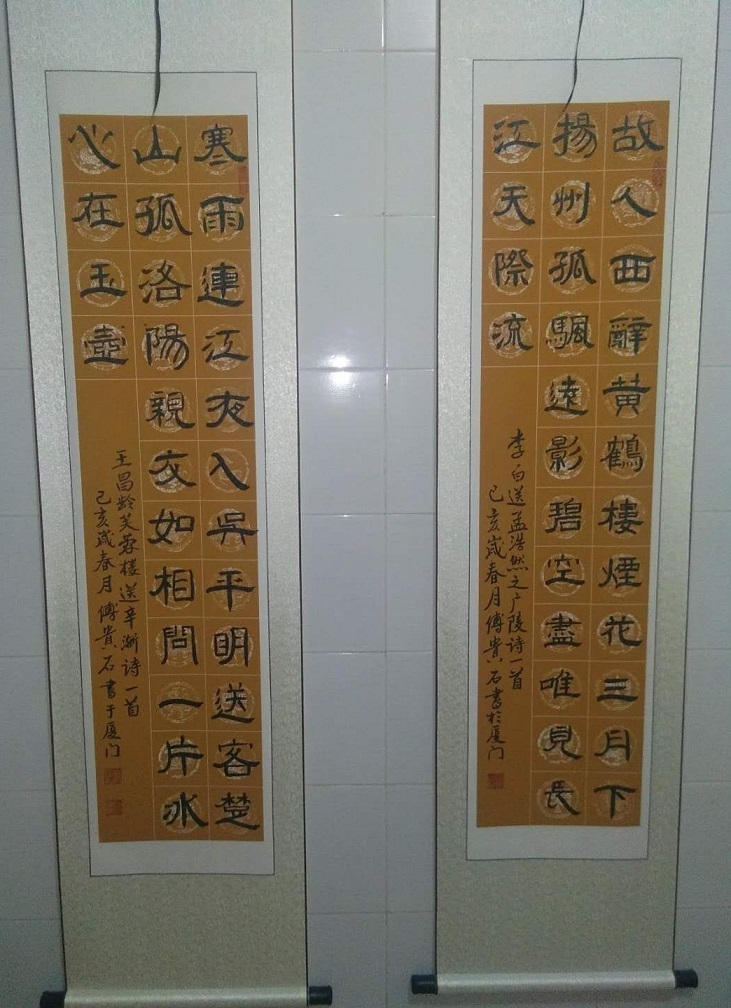 故人西辭黄鶴樓煙花三月下
揚州孤颿遠影碧空盡唯見長
江天際流
李白送孟浩然之广陵诗一首
己亥岁春月傅貴石書於厦门
寒雨連江夜入吳平明送客楚
山孤洛陽親友如相問一片冰
心在玉壺
王昌龄芙蓉楼送辛渐诗一首
己亥岁春月傅貴石書于厦门